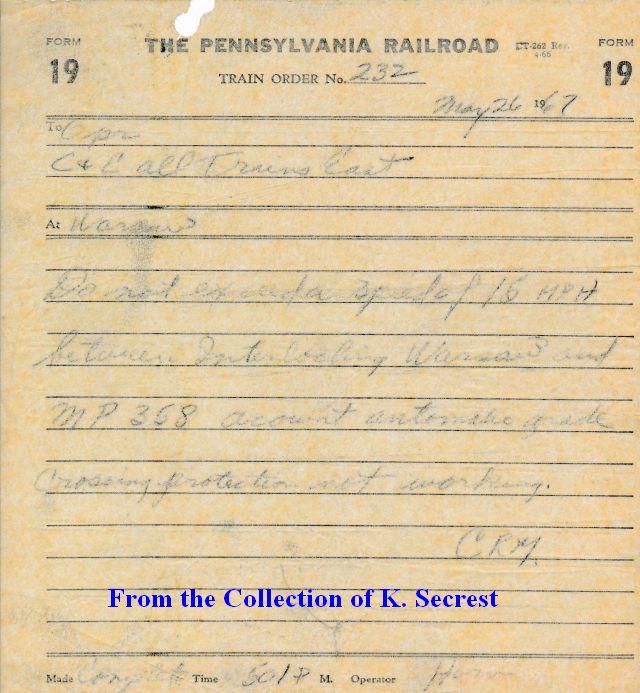 FORM THE PENNSYLVANIA RAILROAD CT-262 Rev. FORM
4-66
19 TRAIN ORDER No. 232 19
May 26 1967
To Opr
C & E all Trains East
At Warsaw
Do not exceed a speed of 15 MPH
between Interlocking Warsaw and
MP 368 account automatic grade
crossing protection not working.
From the Collection of K. Secrest
Made Complete Time 501 P M. Operator